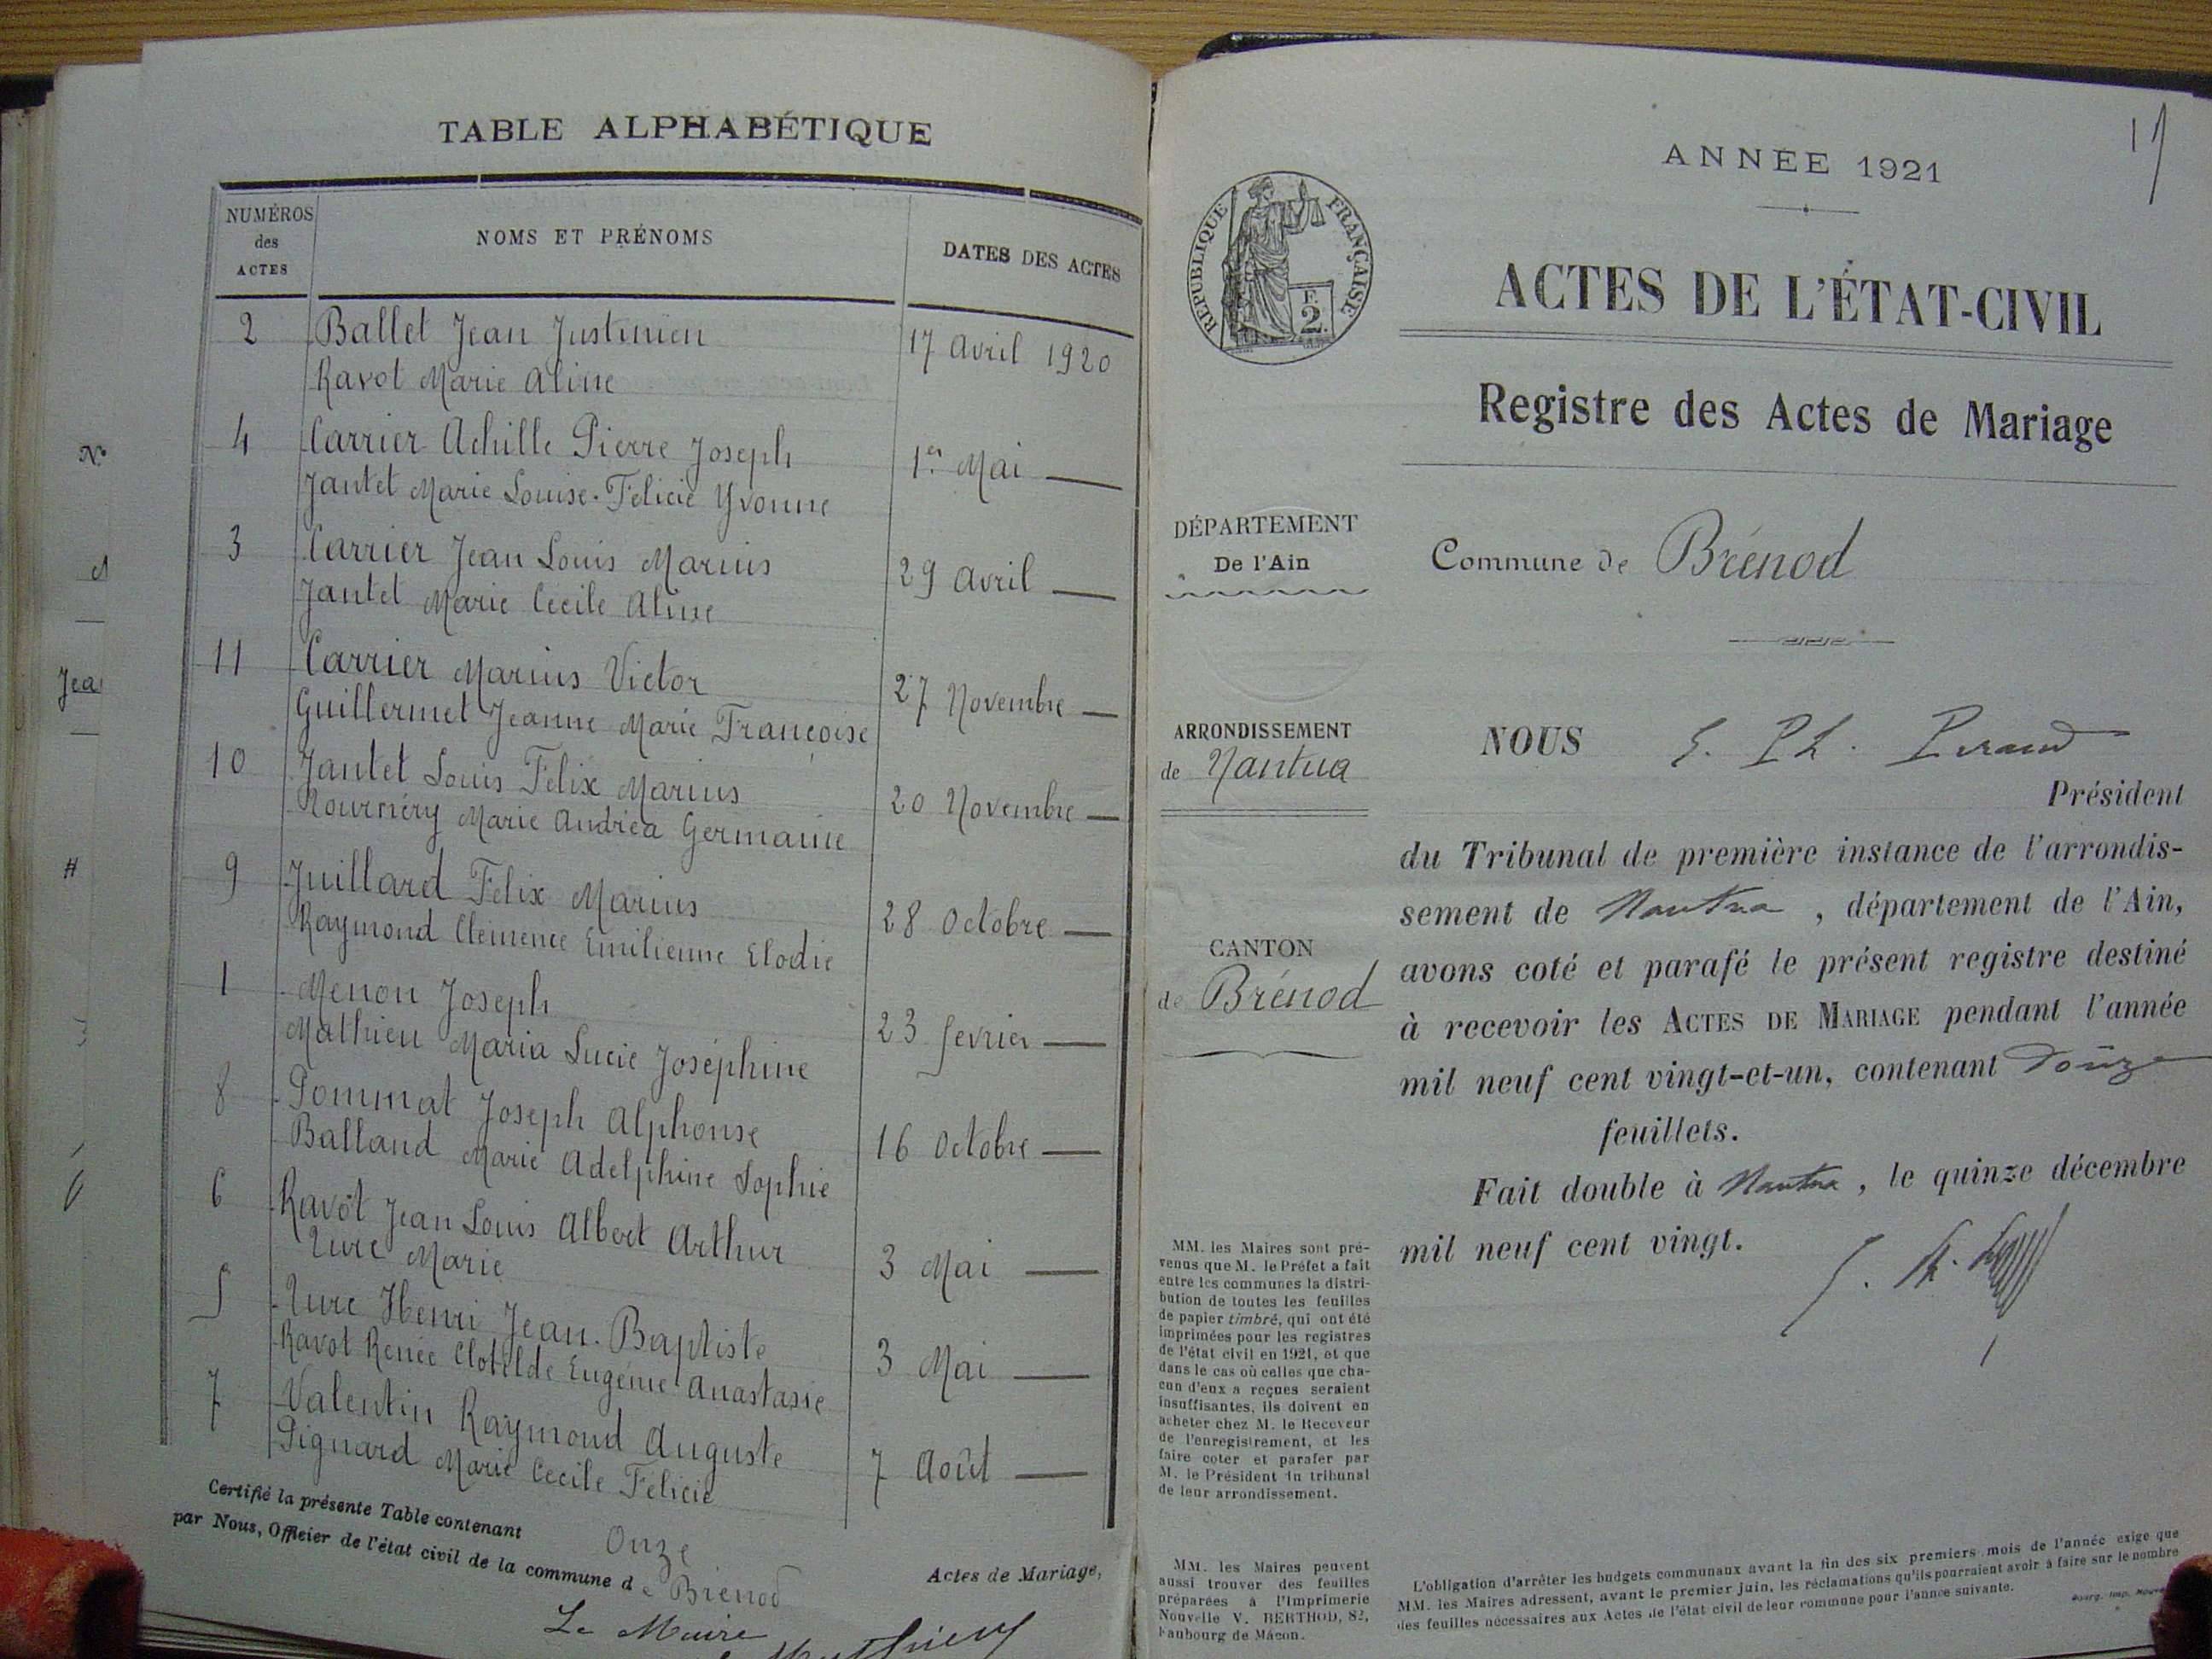 TABLE ALPHABÉTIQUE
NUMÉROS
des
ACTES
NOMS ET PRÉNOMS
DATES DES ACTES
2 Ballet Jean Justinien 17 Avril 1920
Ravot Marie Aline
4 Carrier Achille Pierre Joseph 1er Mai —
Jantet Marie Louise-Félicie Yvonne
3 Carrier Jean Louis Marius 29 Avril —
Jantet Marie Cecile Aline
11 Carrier Marius Victor 27 Novembre —
Guillermet Jeanne Marie Françoise
10 Jantet Louis Félix Marius 20 Novembre —
Marie Andréa Germaine
9 Juillard Félix Marius 28 Octobre —
Raymond Clémence Emilienne Elodie
1 Menon Joseph 23 fevrier —
Mathieu Maria Lucie Joséphine
8 Pommat Joseph Alphonse 16 Octobre —
Balland Marie Adelphine Sophie
6 Ravot Jean Louis Albert Arthur 3 Mai —
Marie
5 Henri Jean-Baptiste 3 Mai —
Ravot Renée Clotilde Eugénie Anastasie
7 Valentin Raymond Auguste 7 Août —
Pignard Marie Cecile Félicie
Certifié la présente Table contenant Onze Actes de Mariage,
par Nous, Officier de l'état civil de la commune de Brénod
Le Maire
N°
Jea
17
ANNÉE 1921
RÉPUBLIQUE FRANÇAISE
F.
2.
ACTES DE L'ÉTAT-CIVIL
Registre des Actes de Mariage
DÉPARTEMENT
De l'Ain
Commune de Brénod
ARRONDISSEMENT
de Nantua
CANTON
de Brénod
NOUS
Président
du Tribunal de première instance de l'arrondis-
sement de Nantua, département de l'Ain,
avons coté et parafé le présent registre destiné
à recevoir les ACTES DE MARIAGE pendant l'année
mil neuf cent vingt-et-un, contenant Douze
feuillets.
Fait double à Nantua, le quinze décembre
mil neuf cent vingt.
MM. les Maires sont pré-
venus que M. le Préfet a fait
entre les communes la distri-
bution de toutes les feuilles
de papier timbré, qui ont été
imprimées pour les registres
de l'état civil en 1921, et que
dans le cas où celles que cha-
cun d'eux a reçues seraient
insuffisantes, ils doivent en
acheter chez M. le Receveur
de l'enregistrement, et les
faire coter et parafer par
M. le Président du tribunal
de leur arrondissement.
MM. les Maires peuvent
aussi trouver des feuilles
préparées à l'Imprimerie
Nouvelle V. BERTHOD, 82,
Faubourg de Mâcon.
L'obligation d'arrêter les budgets communaux avant la fin des six premiers mois de l'année exige que
MM. les Maires adressent, avant le premier juin, les réclamations qu'ils pourraient avoir à faire sur le nombre
des feuilles nécessaires aux Actes de l'état civil de leur commune pour l'année suivante.
Bourg. Imp.